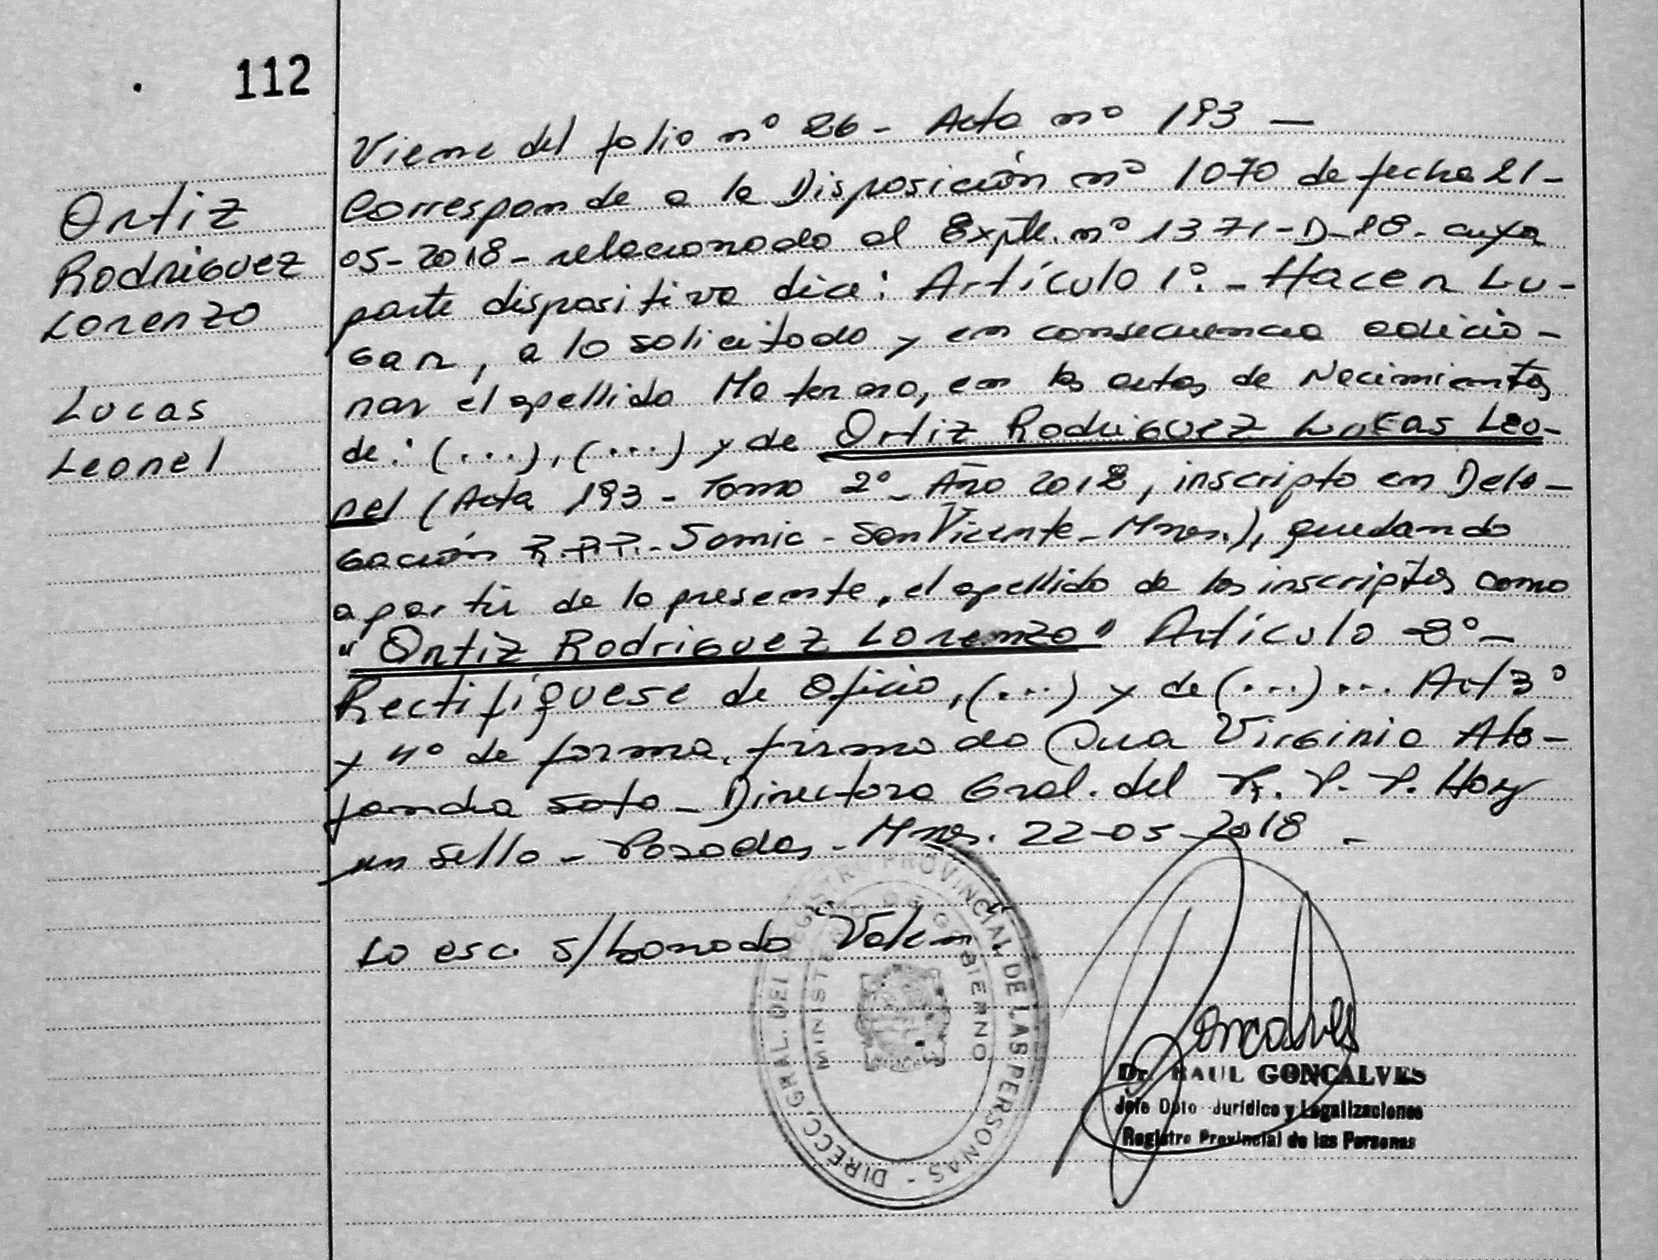 112
Ortiz
Rodriguez
Lorenzo
Lucas
Leonel
Viene del folio nº 26 - Acta nº 193 —
Corresponde a la Disposición nº 1070 de fecha 21-
05-2018 - relacionado al Expte. nº 1371-D-18- cuya
parte dispositiva dice: Artículo 1º. - Hacer Lu-
gar, a lo solicitado y en consecuencia adicio-
nar el apellido Materno, en las actas de Nacimientos
de: (...), (...) y de Ortiz Rodriguez Lucas Leo-
nel (Acta 193 - Tomo 2º - Año 2018, inscripto en Dele-
gación R.P.P. - Samic - San Vicente - Mnes.), quedando
a partir de la presente, el apellido de los inscriptos como
"Ortiz Rodriguez Lorenzo" Artículo 2º -
Rectifíquese de Oficio, (...) y de (...) ... Art 3º
y 4º de forma, firmado Dra Virginia Ale-
jandra Soto - Directora Gral. del R. P. P. Hay
un sello - Posadas - Mnes. 22-05-2018 -
Lo esc. s/borrado "Valen
DIRECC. GRAL. DEL REGISTRO PROVINCIAL DE LAS PERSONAS -
MINISTERIO DE GOBIERNO
Goncalves
Dr. RAUL GONCALVES
Jefe Dpto Jurídico y Legalizaciones
Registro Provincial de las Personas